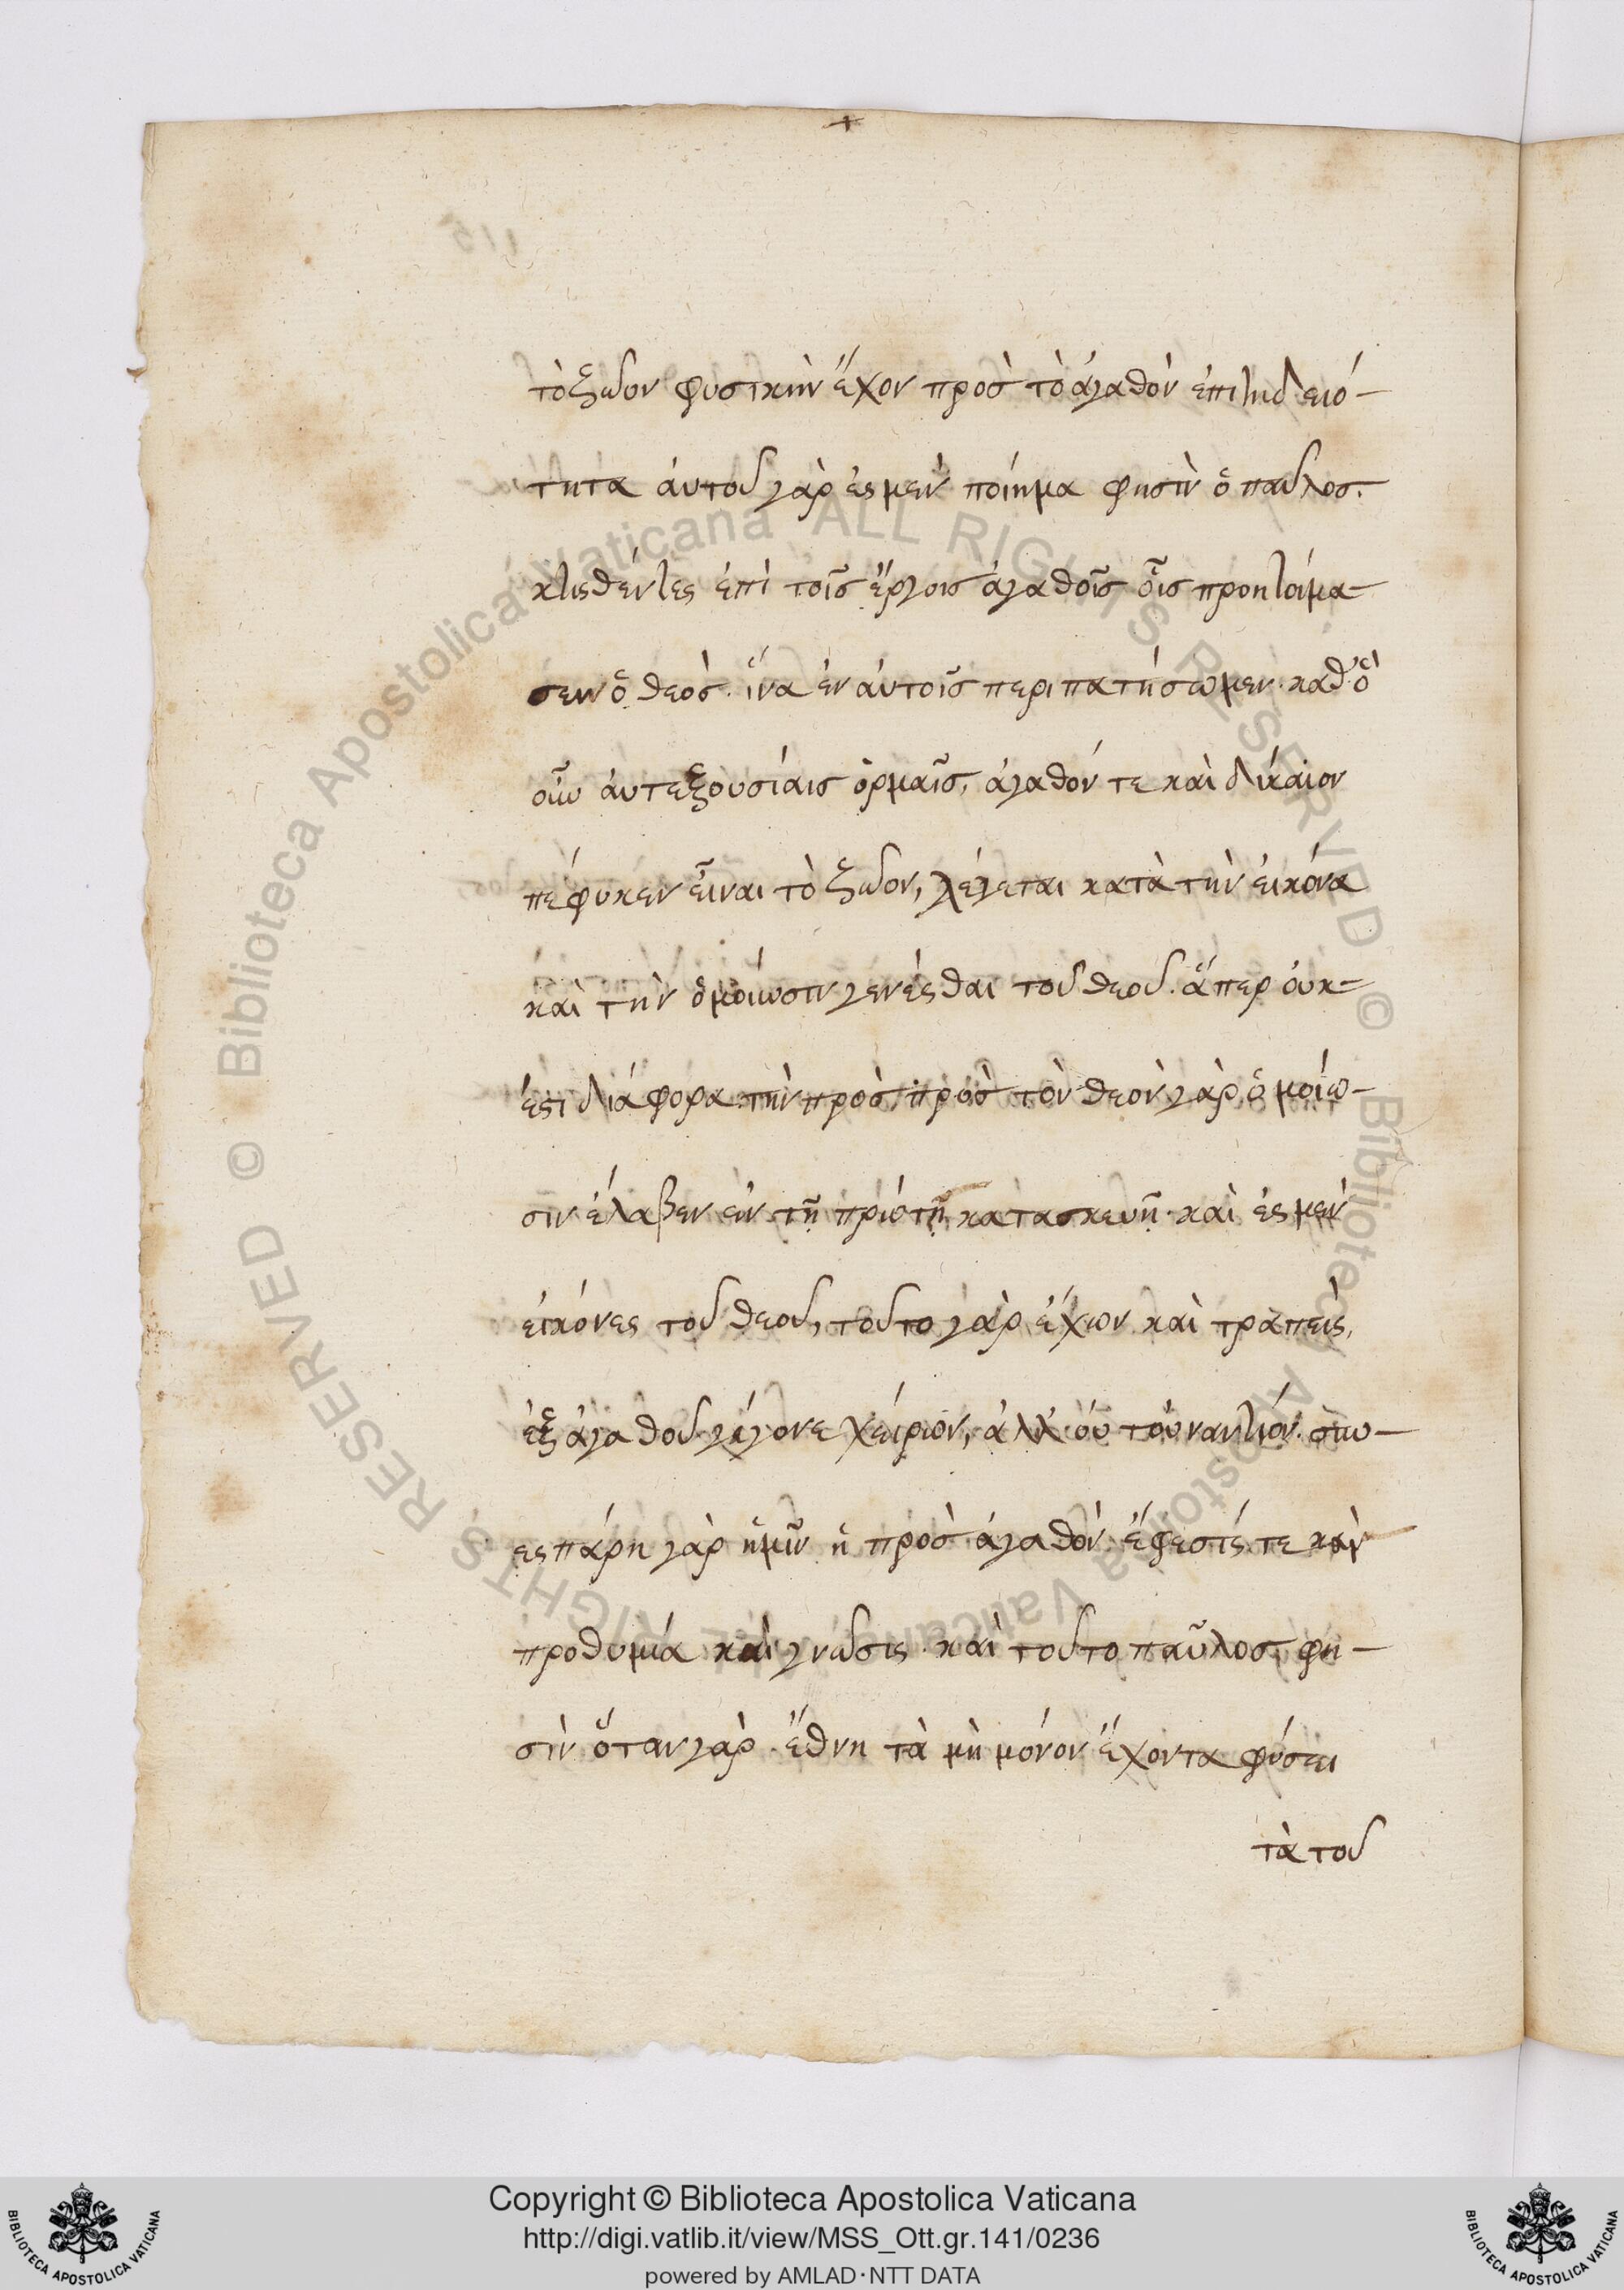 +
115
τὸ ξῶον φυσικὴν ἔχον πρὸς τὸ ἀγαθὸν ἐπιτηδειό-
τητα ἀυτοῦ γὰρ ἐσμεν ποίημα φησὶν ὁ παῦλος.
κτισθέντες ἐπὶ τοῖς ἔργοις ἀγαθοῖς οἷς προητοίμα-
σεν ὁ θεὸς. ἵνα ἐν ἀυτοῖς περιπατήσωμεν. καθ' ὃ
οὖν ἀυτεξουσίαις ὁρμαῖς, ἀγαθόν τε καὶ δίκαιον
πέφυκεν εἶναι τὸ ξῶον, λέγεται κατὰ τὴν εἰκόνα
καὶ τὴν ὁμοίωσιν γενέσθαι τοῦ θεοῦ. ἅπερ ὀυκ-
έστι διάφορα τὴν πρὸς, πρὸς τὸν θεὸν γὰρ ὁμοίω-
σιν ἔλαβεν ἐν τῇ πρώτῃ κατασκευῇ. καὶ ἐσμεν
εἰκόνες τοῦ θεοῦ, τοῦτο γὰρ ἔχων καὶ τραπεὶς,
ἐξ ἀγαθοῦ γέγονε χείρων, ἀλλ' ὀυ τὀυναντίον. συν-
εσπάρη γὰρ ἡμῖν ἡ πρὸς ἀγαθὸν ἔφεσίς τε καὶ
προθυμία καὶ γνῶσις. καὶ τοῦτο παῦλος, φη-
σὶν ὅταν γὰρ ἔθνη τὰ μὴ μόνον ἔχοντα φύσει
τὰ τοῦ
Biblioteca Apostolica Vaticana ALL RIGHTS RESERVED © Biblioteca Apostolica Vaticana ALL RIGHTS RESERVED ©
Copyright © Biblioteca Apostolica Vaticana
http://digi.vatlib.it/view/MSS_Ott.gr.141/0236
powered by AMLAD·NTT DATA
BIBLIOTECA APOSTOLICA VATICANA
BIBLIOTECA APOSTOLICA VATICANA